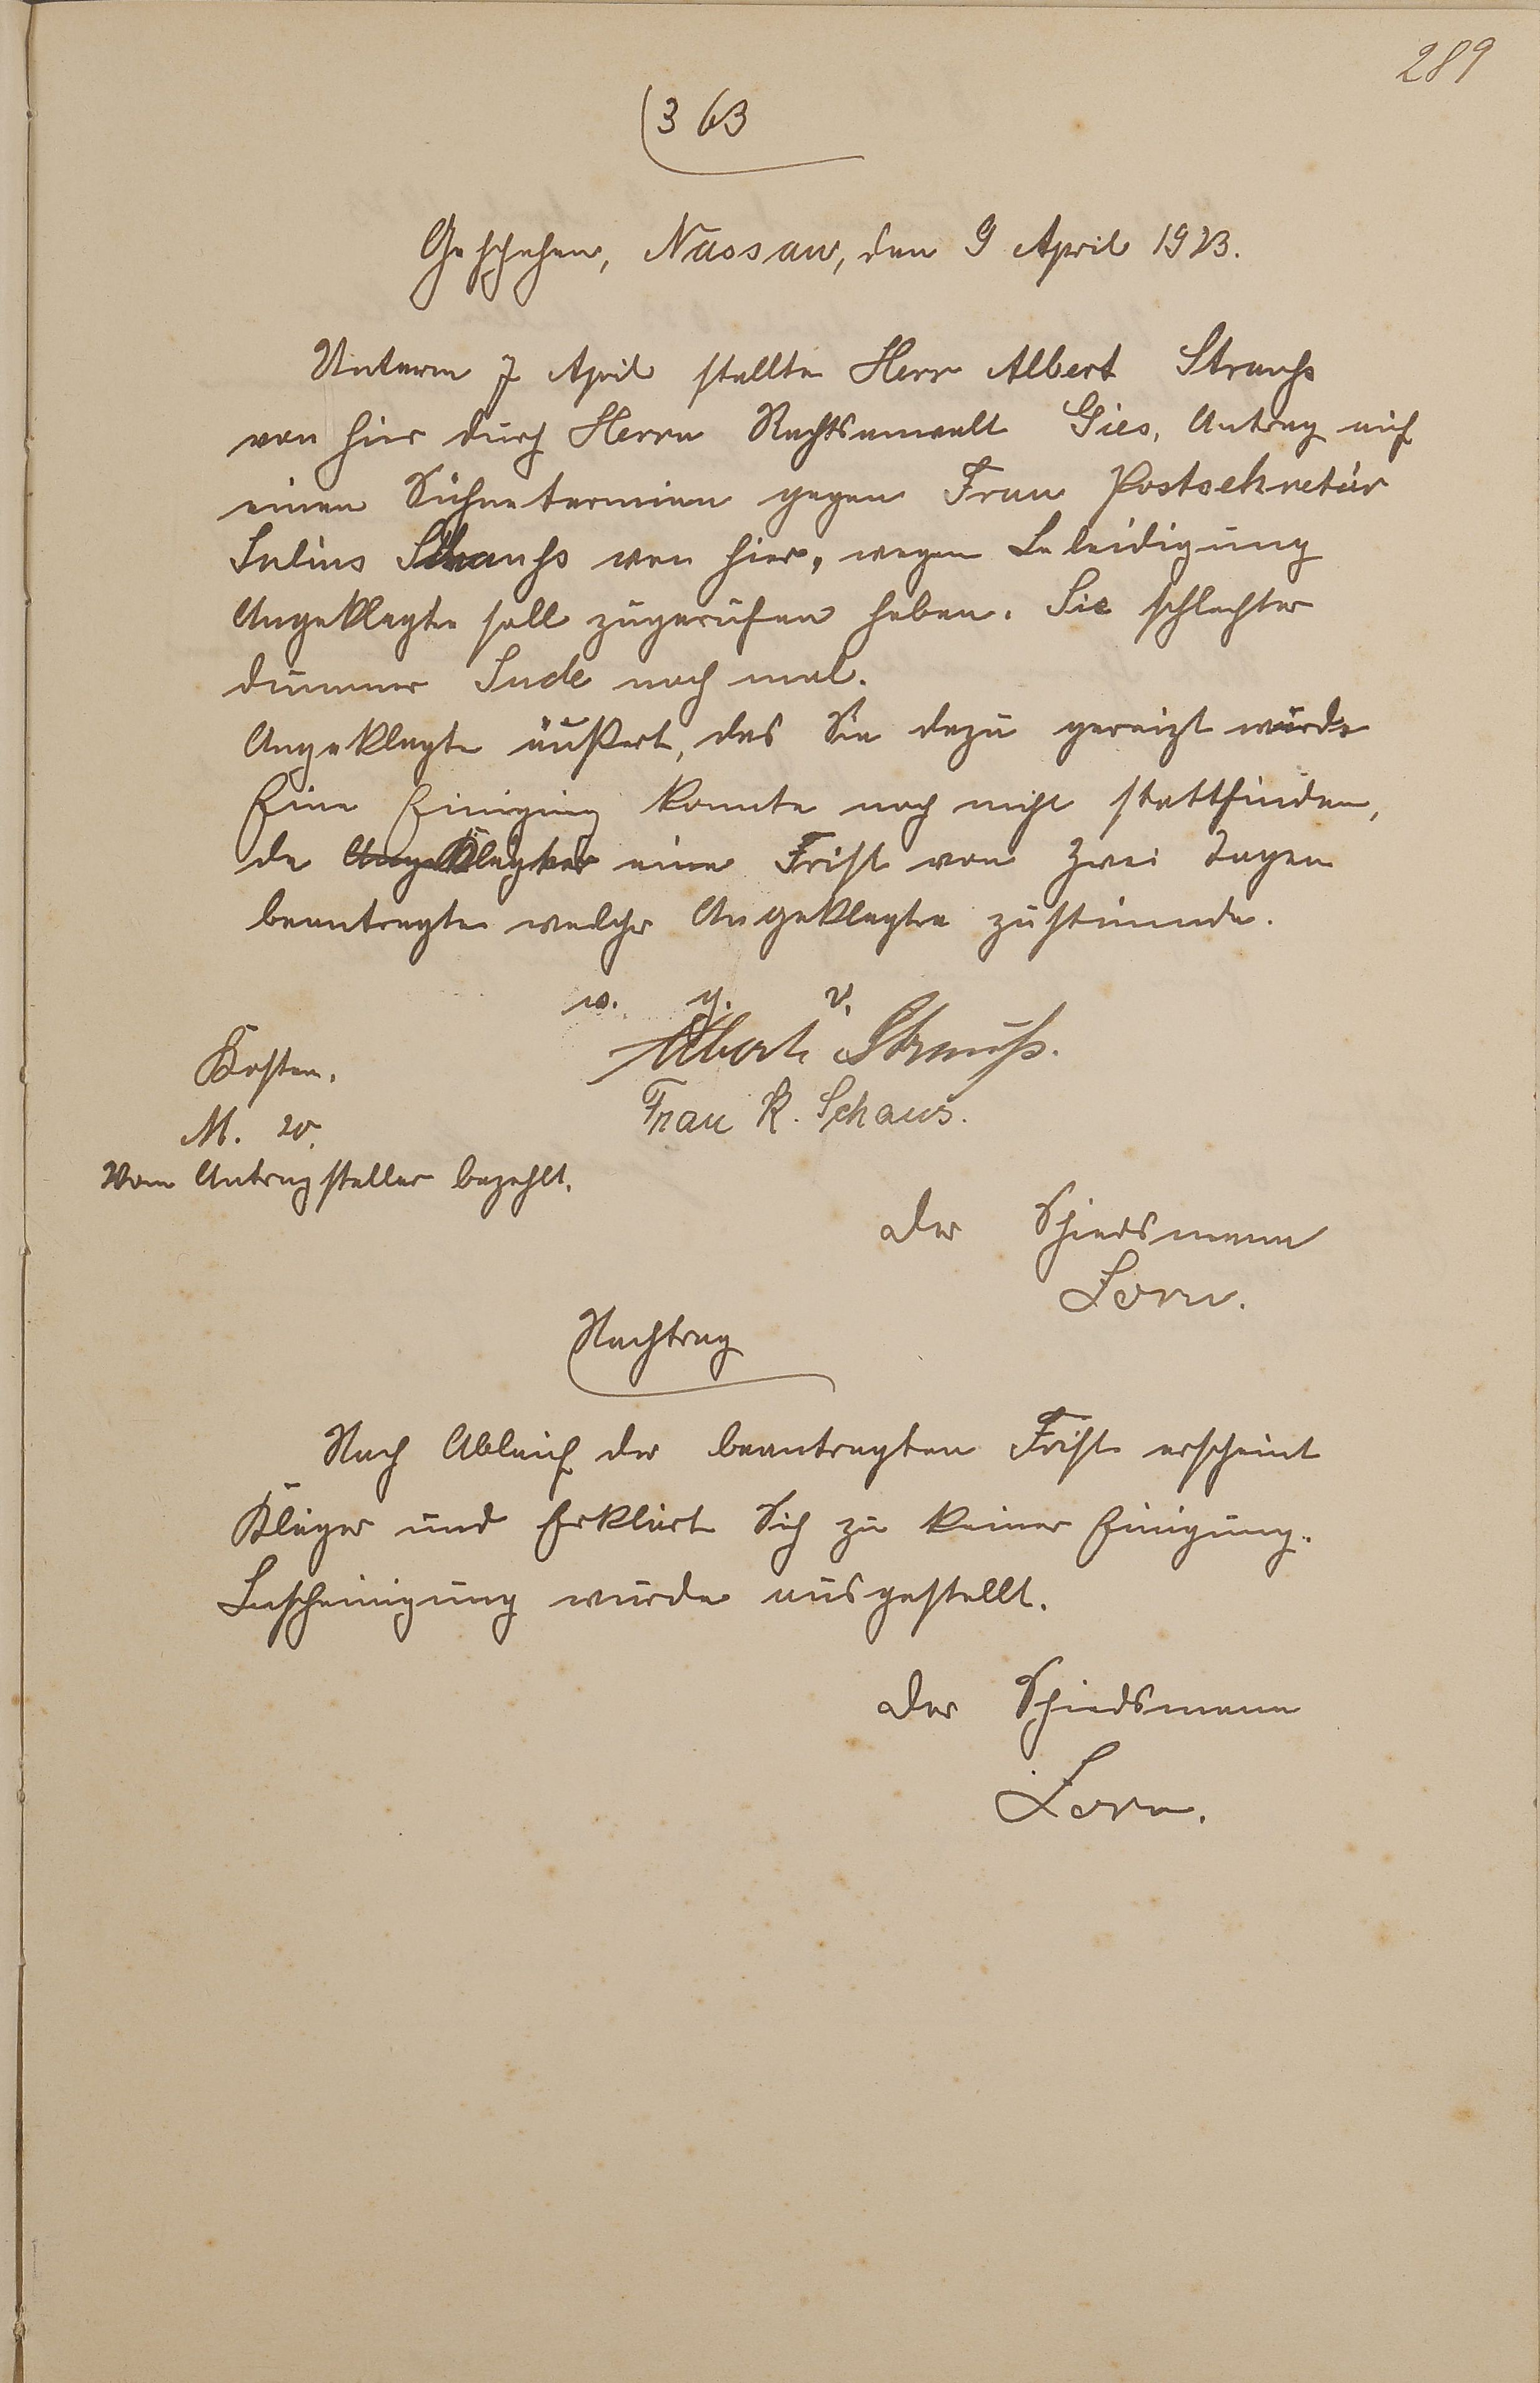 289
363
Geschehen, Nassau, den 9 April 1923.
Unterm 7 April stellte Herr Albert Strauss
von hier durch Herrn Rechtsanwalt Gies, Antrag auf
einen Sühnetermin gegen Frau Postsekretär
Julius Schauss von hier, wegen Beleidigung
Angeklagte soll zugerufen haben. Sie schlechter
dummer Jude noch mal.
Angeklagte äußert, das Sie dazu gereizt würde
Eine Einigung konnte noch nicht stattfinden,
da Kläger eine Frist von zwei Tagen
beantragte welcher Angeklagte zustimmde.
v. g. u.
Albert Strauß.
Frau R. Schaus.
Kosten.
M. 20.
Vom Antragsteller bezahlt.
Der Schiedsmann
Zorn.
Nachtrag
Nach Ablauf der beantragten Frist erscheint
Kläger und Erklärt Sich zu keiner Einigung.
Bescheinigung wurde ausgestellt.
Der Schiedsmann
Zorn.